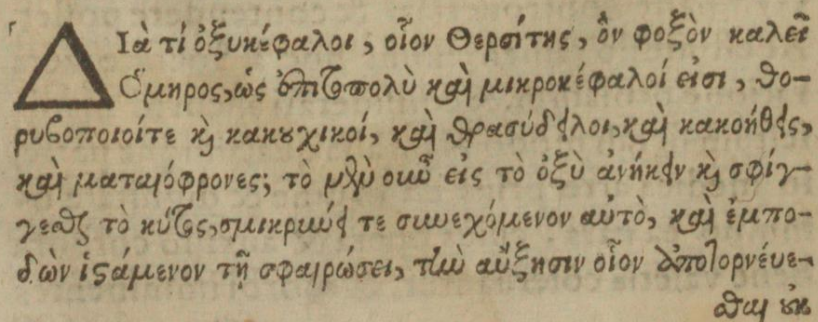 Διὰ τί ὀξυκέφαλοι, οἷον Θερσίτης, ὃν φοξὸν καλεῖ
Ὅμηρος, ὡς ἐπιτοπολὺ καὶ μικροκέφαλοί εἰσι, θο-
ρυβοποιοίτε κὶ κακουχικοί, καὶ θρασύδειλοι, καὶ κακοήθεις,
καὶ ματαιόφρονες; τὸ μὲν οὖν εἰς τὸ ὀξὺ ἀνήκειν κὶ σφίγ-
γεσθαι τὸ κύτος, σμικρύνει τε συνεχόμενον αὐτὸ, καὶ ἐμπο-
δὼν ἱστάμενον τῇ σφαιρώσει, τὴν αὔξησιν οἷον ἀποτορνέυε-
σθαι οὐκ